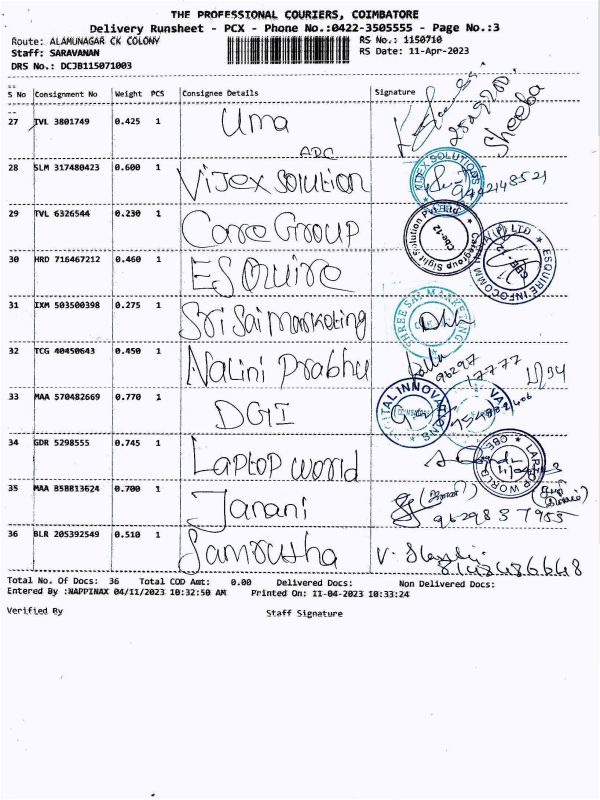 THE PROFESSIONAL COURIERS, COIMBATORE
Delivery Runsheet - PCX - Phone No.:0422-3505555 - Page No.:3
Route: ALAMUNAGAR CK COLONY RS No.: 1150710
Staff: SARAVANAN RS Date: 11-Apr-2023
DRS No.: DCJB115071003
S No Consignment No Weight PCS Consignee Details Signature
27 IVL 3801749 0.425 1 Uma Sheeba
ADC
28 SLM 317480423 0.600 1 Vijex Solution VIJEX SOLUTIONS 9442148521
29 TVL 6326544 0.230 1 Care Group Categroup Sigit Solution Pvt Ltd Cbe-12
30 HRD 716467212 0.460 1 ESquire ESQUIRE INFOCOMM (P) LTD CBE
31 IXM 503500398 0.275 1 Sri Sai Marketing SHREE SAI MARKETING
32 TCG 40450643 0.450 1 Nalini Prabhu 96297 17777
33 MAA 570482669 0.770 1 DGI
34 GDR 5298555 0.745 1 Laptop world LAPTOP WORLD CBE
35 MAA 858813624 0.700 1 Janani 9629837955
36 BLR 205392549 0.510 1 Samrutha 8148486648
Total No. Of Docs: 36 Total COD Amt: 0.00 Delivered Docs: Non Delivered Docs:
Entered By :NAPPINAX 04/11/2023 10:32:50 AM Printed On: 11-04-2023 10:33:24
Verified By Staff Signature